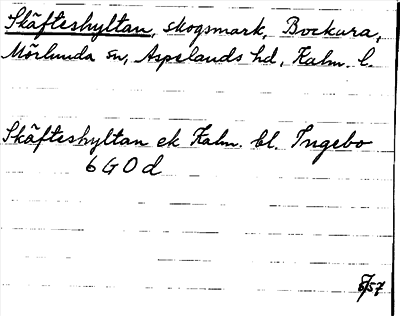 Skäfteshyltan, skogsmark, Bockara,
Mörlunda sn, Aspelands hd, Kalm. l.
Skäfteshyltan ek Kalm. bl. Ingebo
6 G 0 d
8/57